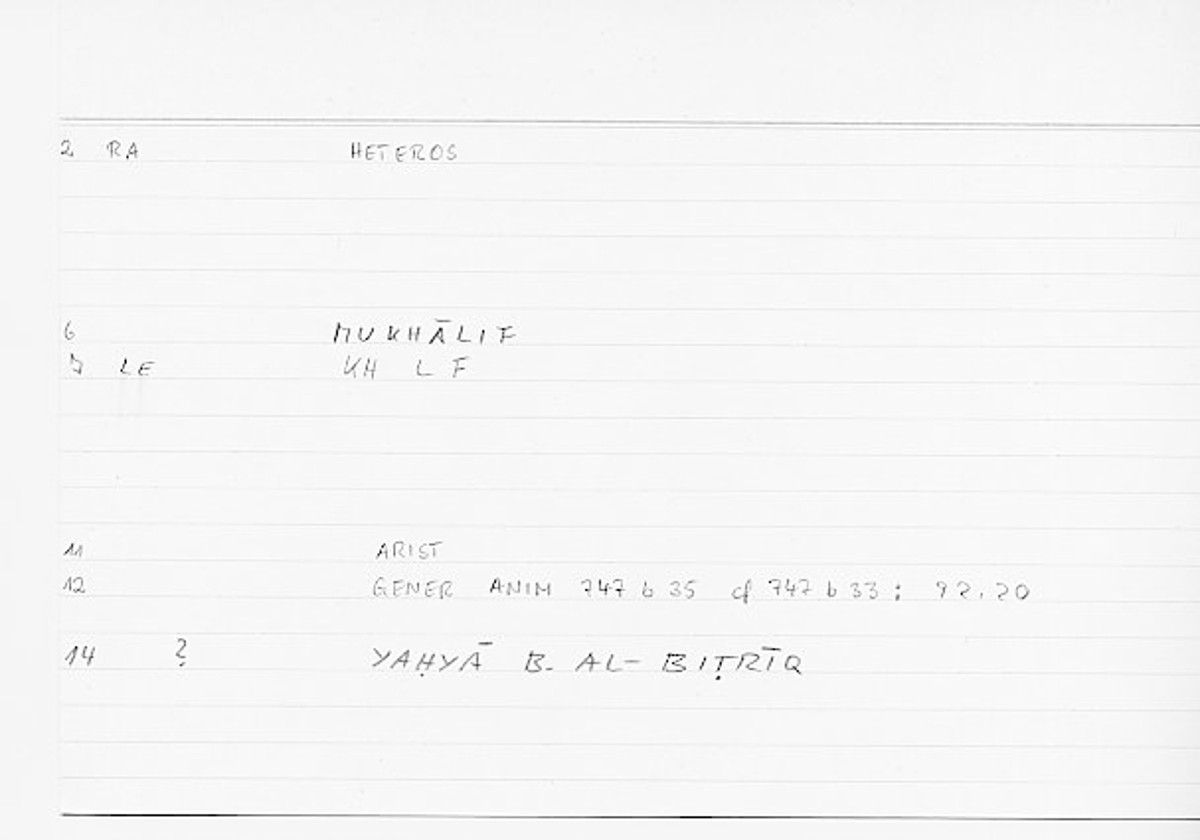 2 RA HETEROS
6 MUKHĀLIF
7 LE KH L F
11 ARIST
12 GENER ANIM 747 b 35 cf 747 b 33 : 92.20
14 ? YAḤYĀ B. AL-BIṬRĪQ